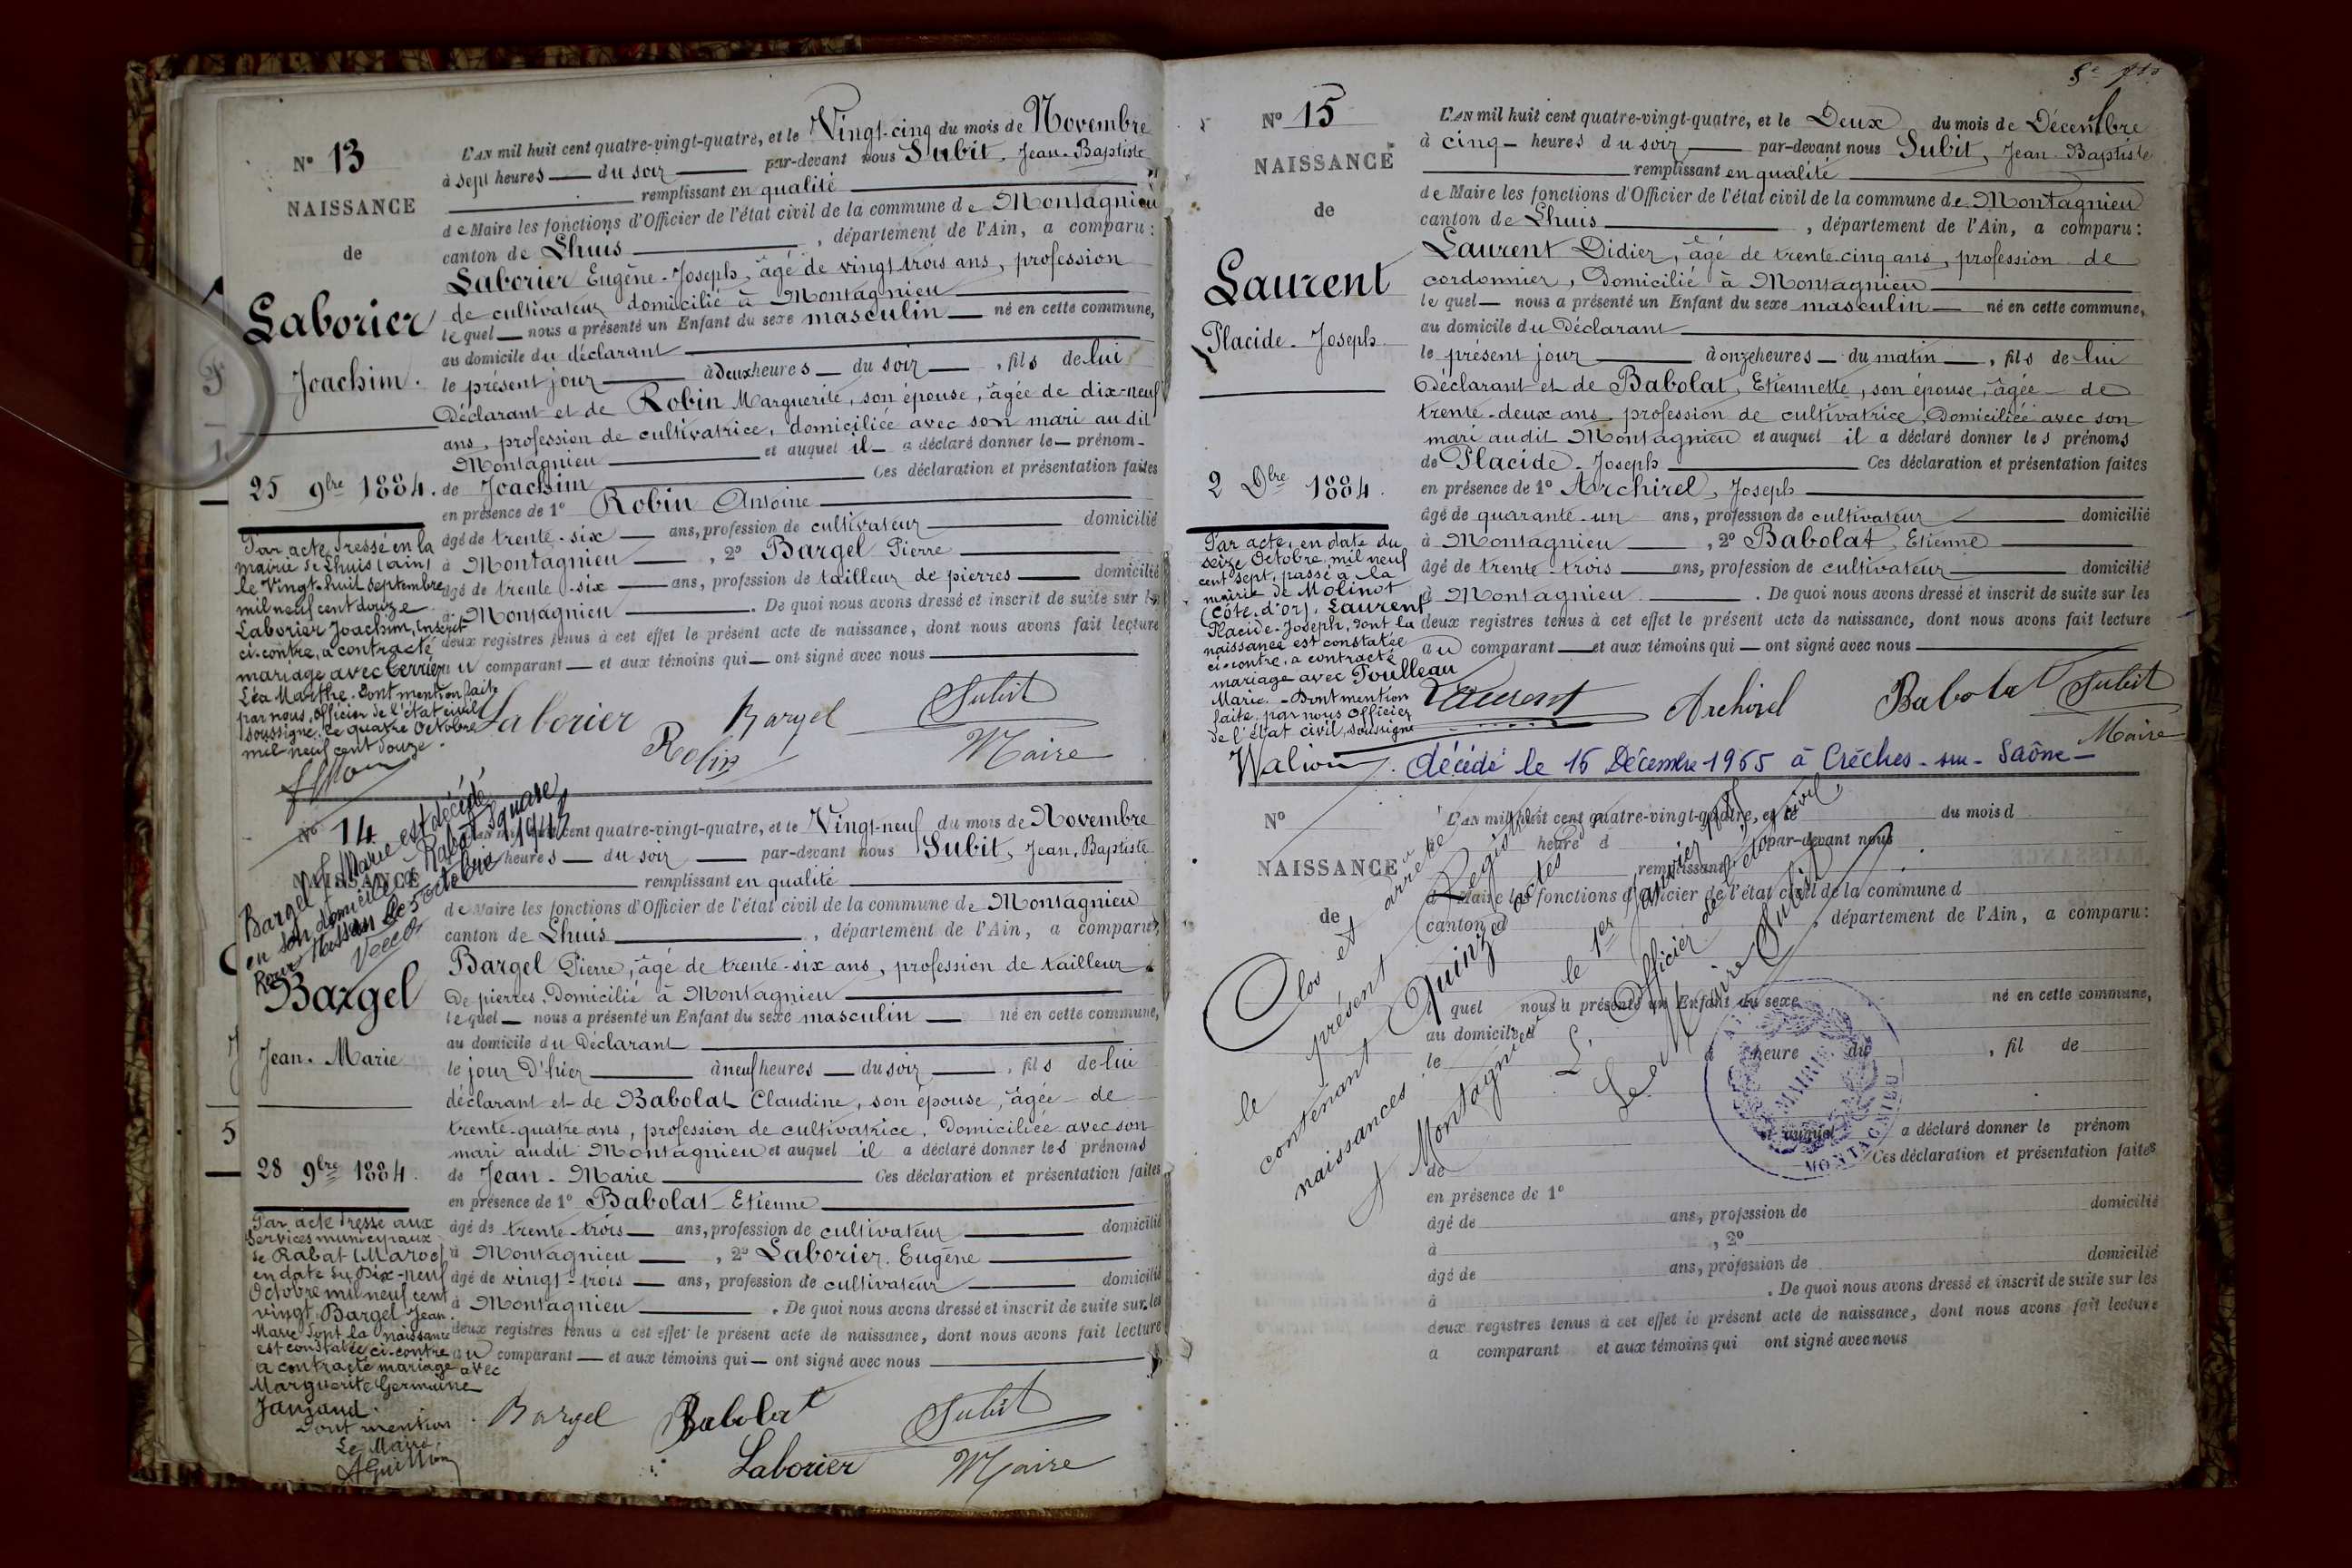 Nº 13
NAISSANCE
de
Laborier
Joachim.
25 9bre 1884.
Par acte dressé en la
mairie de Lhuis (Ain)
le Vingt-huit Septembre
mil neuf cent douze
Laborier Joachim, inscrit
ci-contre, a contracté
mariage avec
Léa Marthe. Dont mention faite
par nous, officier de l'état civil
soussigné, le quatre Octobre
mil neuf cent douze.
L'AN mil huit cent quatre-vingt-quatre, et le Vingt-cinq du mois de Novembre
à sept heures du soir par-devant nous Subit, Jean-Baptiste
remplissant en qualité
de Maire les fonctions d'Officier de l'état civil de la commune de Montagnieu
canton de Lhuis, département de l'Ain, a comparu:
Laborier Eugène-Joseph, âgé de vingt trois ans, profession
de cultivateur domicilié à Montagnieu
lequel nous a présenté un Enfant du sexe masculin né en cette commune,
au domicile du déclarant
le présent jour à deux heures du soir, fils de lui
Déclarant et de Robin Marguerite, son épouse, âgée de dix-neuf
ans, profession de cultivatrice, domiciliée avec son mari au dit
Montagnieu et auquel il a déclaré donner le prénom
de Joachim Ces déclaration et présentation faites
en présence de 1º Robin Antoine
âgé de trente-six ans, profession de cultivateur domicilié
à Montagnieu, 2º Bargel Pierre
âgé de trente-six ans, profession de tailleur de pierres domicilié
à Montagnieu. De quoi nous avons dressé et inscrit de suite sur les
deux registres tenus à cet effet le présent acte de naissance, dont nous avons fait lecture
au comparant et aux témoins qui ont signé avec nous
Laborier Bargel Subit
Robin Maire
Nº 14
NAISSANCE
Bargel Jean Marie est décédé
en son domicile à Rabat square
Pour Hassan le 5 octobre 1942
Bargel
Jean-Marie
28 9bre 1884.
Par acte dressé aux
Services municipaux
de Rabat (Maroc)
en date du Dix-neuf
Octobre mil neuf cent
vingt Bargel Jean
Marie dont la naissance
est constatée ci-contre
a contracté mariage avec
Marguerite Germaine
Janiaud.
Dont mention
Le Maire,
AGuillon
L'AN mil huit cent quatre-vingt-quatre, et le Vingt-neuf du mois de Novembre
heures du soir par-devant nous Subit, Jean-Baptiste
remplissant en qualité
de Maire les fonctions d'Officier de l'état civil de la commune de Montagnieu
canton de Lhuis, département de l'Ain, a comparu:
Bargel Pierre, âgé de trente-six ans, profession de tailleur
de pierres, Domicilié à Montagnieu
lequel nous a présenté un Enfant du sexe masculin né en cette commune,
au domicile du Déclarant
le jour D'hier à neuf heures du soir, fils de lui
déclarant et de Babolat Claudine, son épouse, âgée de
trente-quatre ans, profession de cultivatrice, Domiciliée avec son
mari audit Montagnieu et auquel il a déclaré donner les prénoms
de Jean-Marie Ces déclaration et présentation faites
en présence de 1º Babolat Etienne
âgé de trente-trois ans, profession de cultivateur domicilié
à Montagnieu, 2º Laborier Eugène
âgé de vingt-trois ans, profession de cultivateur domicilié
à Montagnieu. De quoi nous avons dressé et inscrit de suite sur les
deux registres tenus à cet effet le présent acte de naissance, dont nous avons fait lecture
au comparant et aux témoins qui ont signé avec nous
Bargel Babolat Subit
Laborier Maire
Nº 15
NAISSANCE
de
Laurent
Placide-Joseph
2 Dbre 1884.
Par acte, en date du
seize Octobre mil neuf
cent sept, passé à la
mairie de Molinot
(Côte-d'or), Laurent
Placide-Joseph, dont la
naissance est constatée
ci-contre, a contracté
mariage avec Poulleau
Marie. - Dont mention
faite par nous Officier
de l'état civil, soussigné
L'AN mil huit cent quatre-vingt-quatre, et le Deux du mois de Décembre
à cinq heures du soir par-devant nous Subit, Jean-Baptiste
remplissant en qualité
de Maire les fonctions d'Officier de l'état civil de la commune de Montagnieu
canton de Lhuis, département de l'Ain, a comparu:
Laurent Didier, âgé de trente-cinq ans, profession de
cordonnier, Domicilié à Montagnieu
lequel nous a présenté un Enfant du sexe masculin né en cette commune,
au domicile du Déclarant
le présent jour à onze heures du matin, fils de lui
Déclarant et de Babolat, Etiennette, son épouse, âgée de
trente-deux ans, profession de cultivatrice, Domiciliée avec son
mari audit Montagnieu et auquel il a déclaré donner les prénoms
de Placide-Joseph Ces déclaration et présentation faites
en présence de 1º Archirel, Joseph
âgé de quarante-un ans, profession de cultivateur domicilié
à Montagnieu, 2º Babolat, Etienne
âgé de trente-trois ans, profession de cultivateur domicilié
à Montagnieu. De quoi nous avons dressé et inscrit de suite sur les
deux registres tenus à cet effet le présent acte de naissance, dont nous avons fait lecture
au comparant et aux témoins qui ont signé avec nous
Laurent Archirel Babolat Subit
Maire
décédé le 16 Décembre 1965 à Crêches-sur-Saône
Nº
NAISSANCE
de
L'AN mil huit cent quatre-vingt-quatre, et le du mois d
heure d par-devant nous
remplissant
d Maire les fonctions d'Officier de l'état civil de la commune d
canton d, département de l'Ain, a comparu:
l quel nous a présenté un Enfant du sexe né en cette commune,
au domicile d
le à heure du, fil de
et auquel a déclaré donner le prénom
de Ces déclaration et présentation faites
en présence de 1º
âgé de ans, profession de domicilié
à, 2º
âgé de ans, profession de domicilié
à. De quoi nous avons dressé et inscrit de suite sur les
deux registres tenus à cet effet le présent acte de naissance, dont nous avons fait lecture
a comparant et aux témoins qui ont signé avec nous
Clos et arrêté
le présent Registre
contenant Quinze actes de
naissances.
A Montagnieu le 1er Janvier
L'Officier de l'état civil,
Le Maire Subit
MAIRIE
MONTAGNIEU